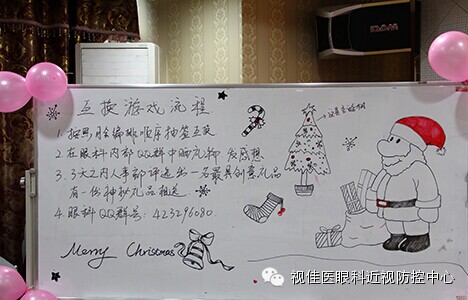 互换游戏流程
1. 按照月份编排顺序抽签互换
2. 在眼科内部QQ群中晒礼物 发感想
3. 3天之内人事部评选出一名最具创意礼品
有一份神秘礼品相送
4. 眼科QQ群号: 423296080.
Merry Christmas
视佳医眼科近视防控中心